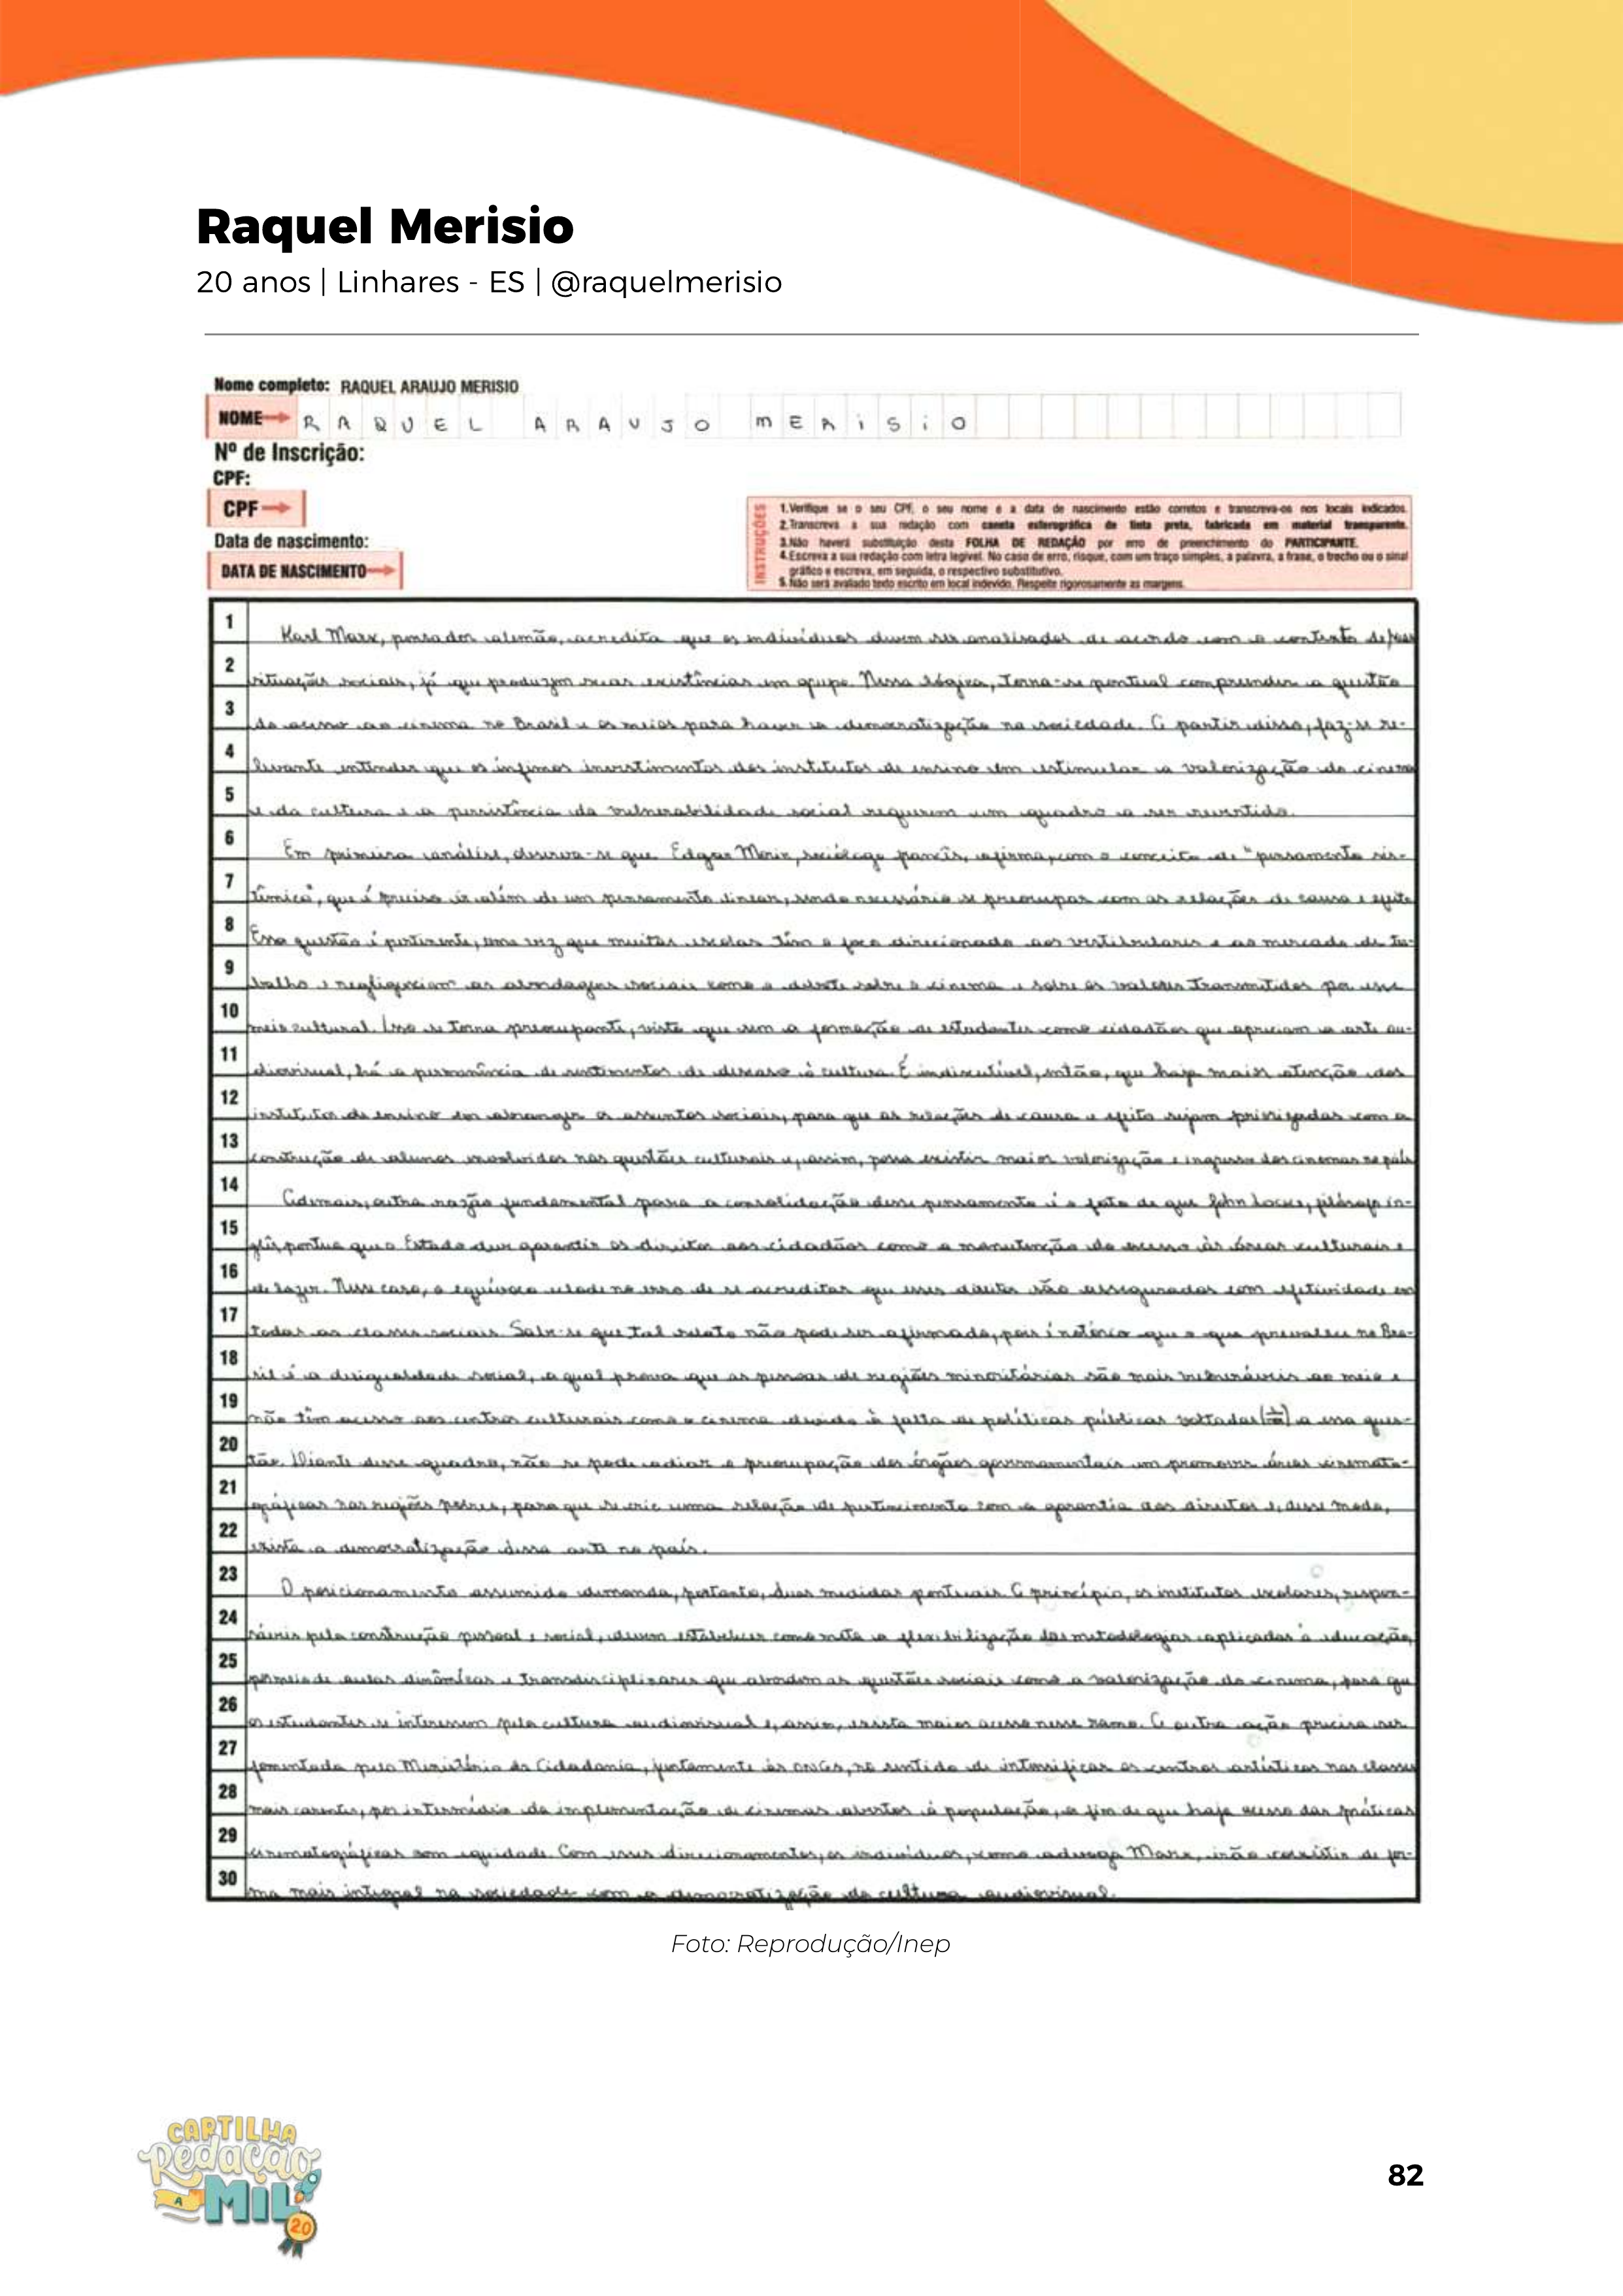 Raquel Merisio
20 anos | Linhares - ES | @raquelmerisio
Nome completo: RAQUEL ARAUJO MERISIO
NOME RAQUEL ARAUJO MERISIO
Nº de Inscrição:
CPF:
CPF
Data de nascimento:
DATA DE NASCIMENTO
INSTRUÇÕES
1.Verifique se o seu CPF, o seu nome e a data de nascimento estão corretos e transcreva-os nos locais indicados.
2.Transcreva a sua redação com caneta esferográfica de tinta preta, fabricada em material transparente.
3.Não haverá substituição desta FOLHA DE REDAÇÃO por erro de preenchimento do PARTICIPANTE.
4.Escreva a sua redação com letra legível. No caso de erro, risque, com um traço simples, a palavra, a frase, o trecho ou o sinal
gráfico e escreva, em seguida, o respectivo substitutivo.
5.Não será avaliado texto escrito em local indevido. Respeite rigorosamente as margens.
1 Karl Marx, pensador alemão, acredita que os indivíduos devem ser analisados de acordo com o contexto de suas
2 situações sociais, já que produzem suas existências em grupo. Nessa lógica, torna-se pontual compreender a questão
3 do acesso ao cinema no Brasil e os meios para haver a democratização na sociedade. A partir disso, faz-se re-
4 levante entender que os ínfimos investimentos dos institutos de ensino em estimular a valorização do cinema
5 e da cultura e a persistência da vulnerabilidade social requerem um quadro a ser revertido.
6 Em primeira análise, observa-se que Edgar Morin, sociólogo francês, afirma, com o conceito de "pensamento sis-
7 têmico", que é preciso ir além de um pensamento linear, sendo necessário se preocupar com as relações de causa e efeito
8 Essa questão é pertinente, uma vez que muitas escolas têm o foco direcionado aos vestibulares e ao mercado de tra-
9 balho e negligenciam as abordagens sociais como o debate sobre o cinema e sobre os valores transmitidos por esse
10 meio cultural. Isso se torna preocupante, visto que sem a formação de estudantes como cidadãos que apreciam a arte au-
11 diovisual, há a permanência de sentimentos de descaso à cultura. É indiscutível, então, que haja maior atenção dos
12 institutos de ensino em abranger os assuntos sociais, para que as relações de causa e efeito sejam priorizadas com a
13 construção de alunos envolvidos nas questões culturais e, assim, possa existir maior valorização e ingresso dos cinemas no país
14 Ademais, outra razão fundamental para a consolidação desse pensamento é o fato de que John Locke, filósofo in-
15 glês, pontua que o Estado deve garantir os direitos aos cidadãos como a manutenção do acesso às áreas culturais e
16 de lazer. Nesse caso, o equívoco eclode no erro de se acreditar que esses direitos são assegurados com efetividade em
17 todas as classes sociais. Sabe-se que tal relato não pode ser afirmado, pois é notório que o que prevalece no Bra-
18 sil é a desigualdade social, a qual prova que as pessoas de regiões minoritárias são mais vulneráveis ao meio e
19 não têm acesso aos centros culturais como o cinema devido à falta de políticas públicas voltadas a essa ques-
20 tão. Diante desse quadro, não se pode adiar a preocupação dos órgãos governamentais em promover áreas cinemato-
21 gráficas nas regiões pobres, para que se crie uma relação de pertencimento com a garantia dos direitos e, desse modo,
22 exista a democratização dessa arte no país.
23 O posicionamento assumido demanda, portanto, duas medidas pontuais. A princípio, os institutos escolares, respon-
24 sáveis pela construção pessoal e social, devem estabelecer como meta a flexibilização das metodologias aplicadas à educação,
25 por meio de aulas dinâmicas e transdisciplinares que abordem as questões sociais como a valorização do cinema, para que
26 os estudantes se interessem pela cultura audiovisual e, assim, exista maior acesso nesse ramo. A outra ação precisa ser
27 fomentada pelo Ministério da Cidadania, juntamente às ONGs, no sentido de intensificar os centros artísticos nas classes
28 mais carentes, por intermédio da implementação de cinemas abertos à população, a fim de que haja acesso das práticas
29 cinematográficas com equidade. Com esses direcionamentos, os indivíduos, como advoga Marx, irão coexistir de for-
30 ma mais integral na sociedade com a democratização da cultura audiovisual.
Foto: Reprodução/Inep
CARTILHA
Redação
A MIL
20
82